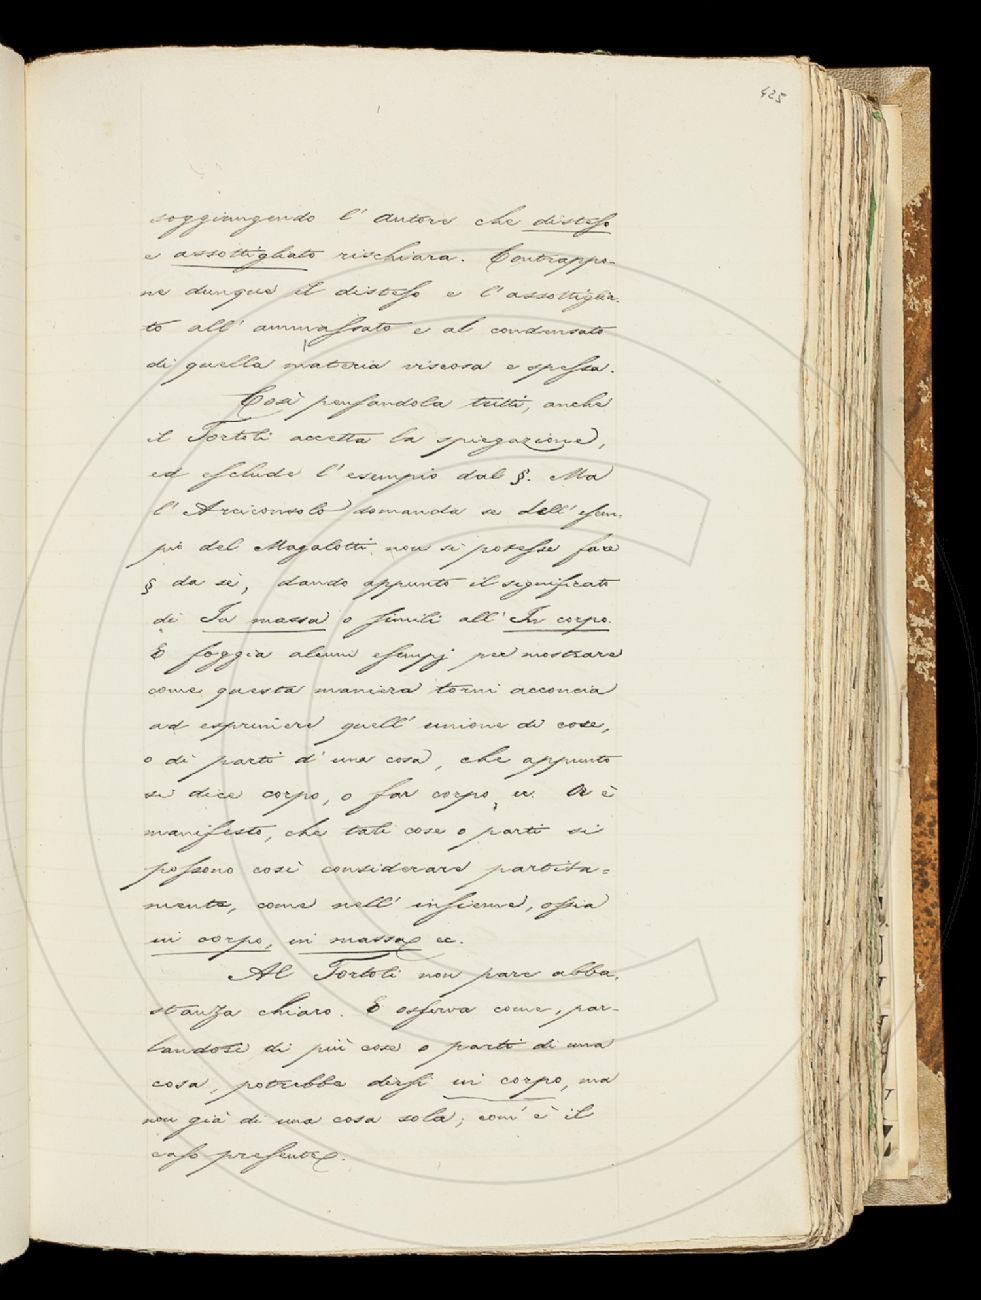 425
soggiungendo l' autore che disteso
e assottigliato rischiara. Contrappo-
ne dunque il disteso e l' assottiglia-
to all' ammassato e al condensato
di quella materia viscosa e spessa.
Così pensandola tutti, anche
il Tortoli accetta la spiegazione,
ed esclude l' esempio dal §. Ma
l' Arciconsolo domanda se dell' esem-
pio del Magalotti non si potesse fare
§ da sè, dando appunto il significato
di In massa o simili all' In corpo.
E foggia alcuni esempj per mostrare
come questa maniera torni acconcia
ad esprimere quell' unione di cose,
o di parti d' una cosa, che appunto
si dice corpo, o far corpo, ec. Or è
manifesto, che tali cose o parti si
possono così considerare partita-
mente, come nell' insieme, ossia
in corpo, in massa ec.
Al Tortoli non pare abba-
stanza chiaro. E osserva come, par-
landosi di più cose o parti di una
cosa, potrebbe dirsi in corpo, ma
non già di una cosa sola; com' è il
caso presente.